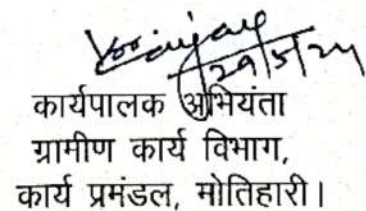 29/5/24
कार्यपालक अभियंता
ग्रामीण कार्य विभाग,
कार्य प्रमंडल, मोतिहारी।